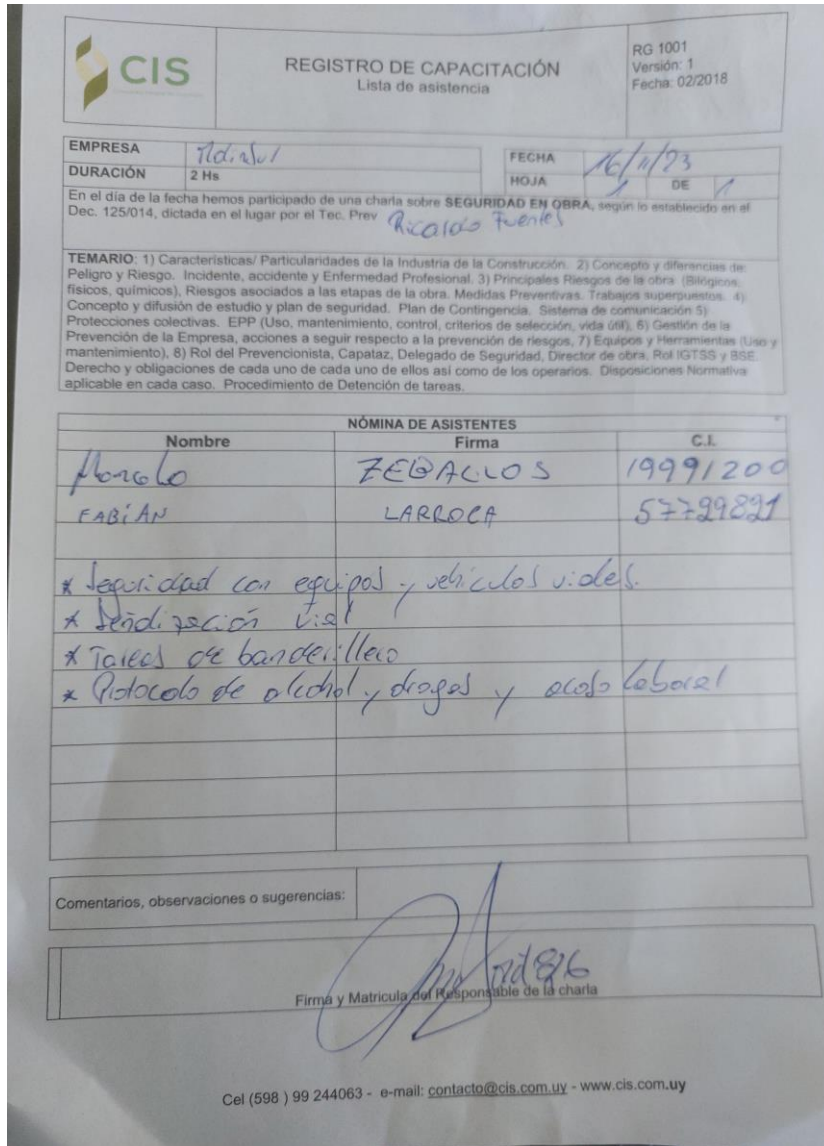 CIS
REGISTRO DE CAPACITACIÓN
Lista de asistencia
RG 1001
Versión: 1
Fecha: 02/2018
EMPRESA
FECHA 16/11/23
DURACIÓN 2 Hs
HOJA 1 DE 1
En el día de la fecha hemos participado de una charla sobre SEGURIDAD EN OBRA, según lo establecido en el
Dec. 125/014, dictada en el lugar por el Tec. Prev Ricardo Fuentes
TEMARIO: 1) Características/ Particularidades de la Industria de la Construcción. 2) Concepto y diferencias de:
Peligro y Riesgo. Incidente, accidente y Enfermedad Profesional. 3) Principales Riesgos de la obra (Bilógicos,
físicos, químicos), Riesgos asociados a las etapas de la obra. Medidas Preventivas. Trabajos superpuestos. 4)
Concepto y difusión de estudio y plan de seguridad. Plan de Contingencia. Sistema de comunicación 5)
Protecciones colectivas. EPP (Uso, mantenimiento, control, criterios de selección, vida útil), 6) Gestión de la
Prevención de la Empresa, acciones a seguir respecto a la prevención de riesgos, 7) Equipos y Herramientas (Uso y
mantenimiento), 8) Rol del Prevencionista, Capataz, Delegado de Seguridad, Director de obra, Rol IGTSS y BSE.
Derecho y obligaciones de cada uno de cada uno de ellos así como de los operarios. Disposiciones Normativa
aplicable en cada caso. Procedimiento de Detención de tareas.
NÓMINA DE ASISTENTES
Nombre Firma C.I.
Marcelo ZEBALLOS 19991200
FABIÁN LARROCA 57729821
* Seguridad con equipos y vehículos viales.
* Señalización vial
* Tareas de banderillero
* Protocolo de alcohol y drogas y acoso laboral
Comentarios, observaciones o sugerencias:
Firma y Matricula del Responsable de la charla
Cel (598 ) 99 244063 - e-mail: contacto@cis.com.uy - www.cis.com.uy